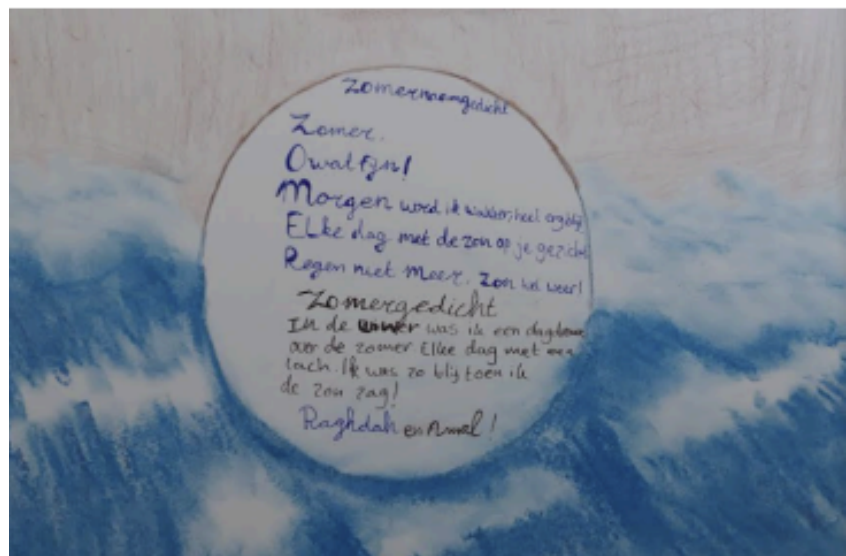 Zomernaamgedicht
Zomer.
O wat fijn!
Morgen word ik wakker, heel erg blij
Elke dag met de zon op je gezicht
Regen niet meer. Zon wel weer!
Zomergedicht
In de winter was ik een dagdromer
over de zomer Elke dag met een
lach. Ik was zo blij toen ik
de zon zag!
Raghdah en Amal!